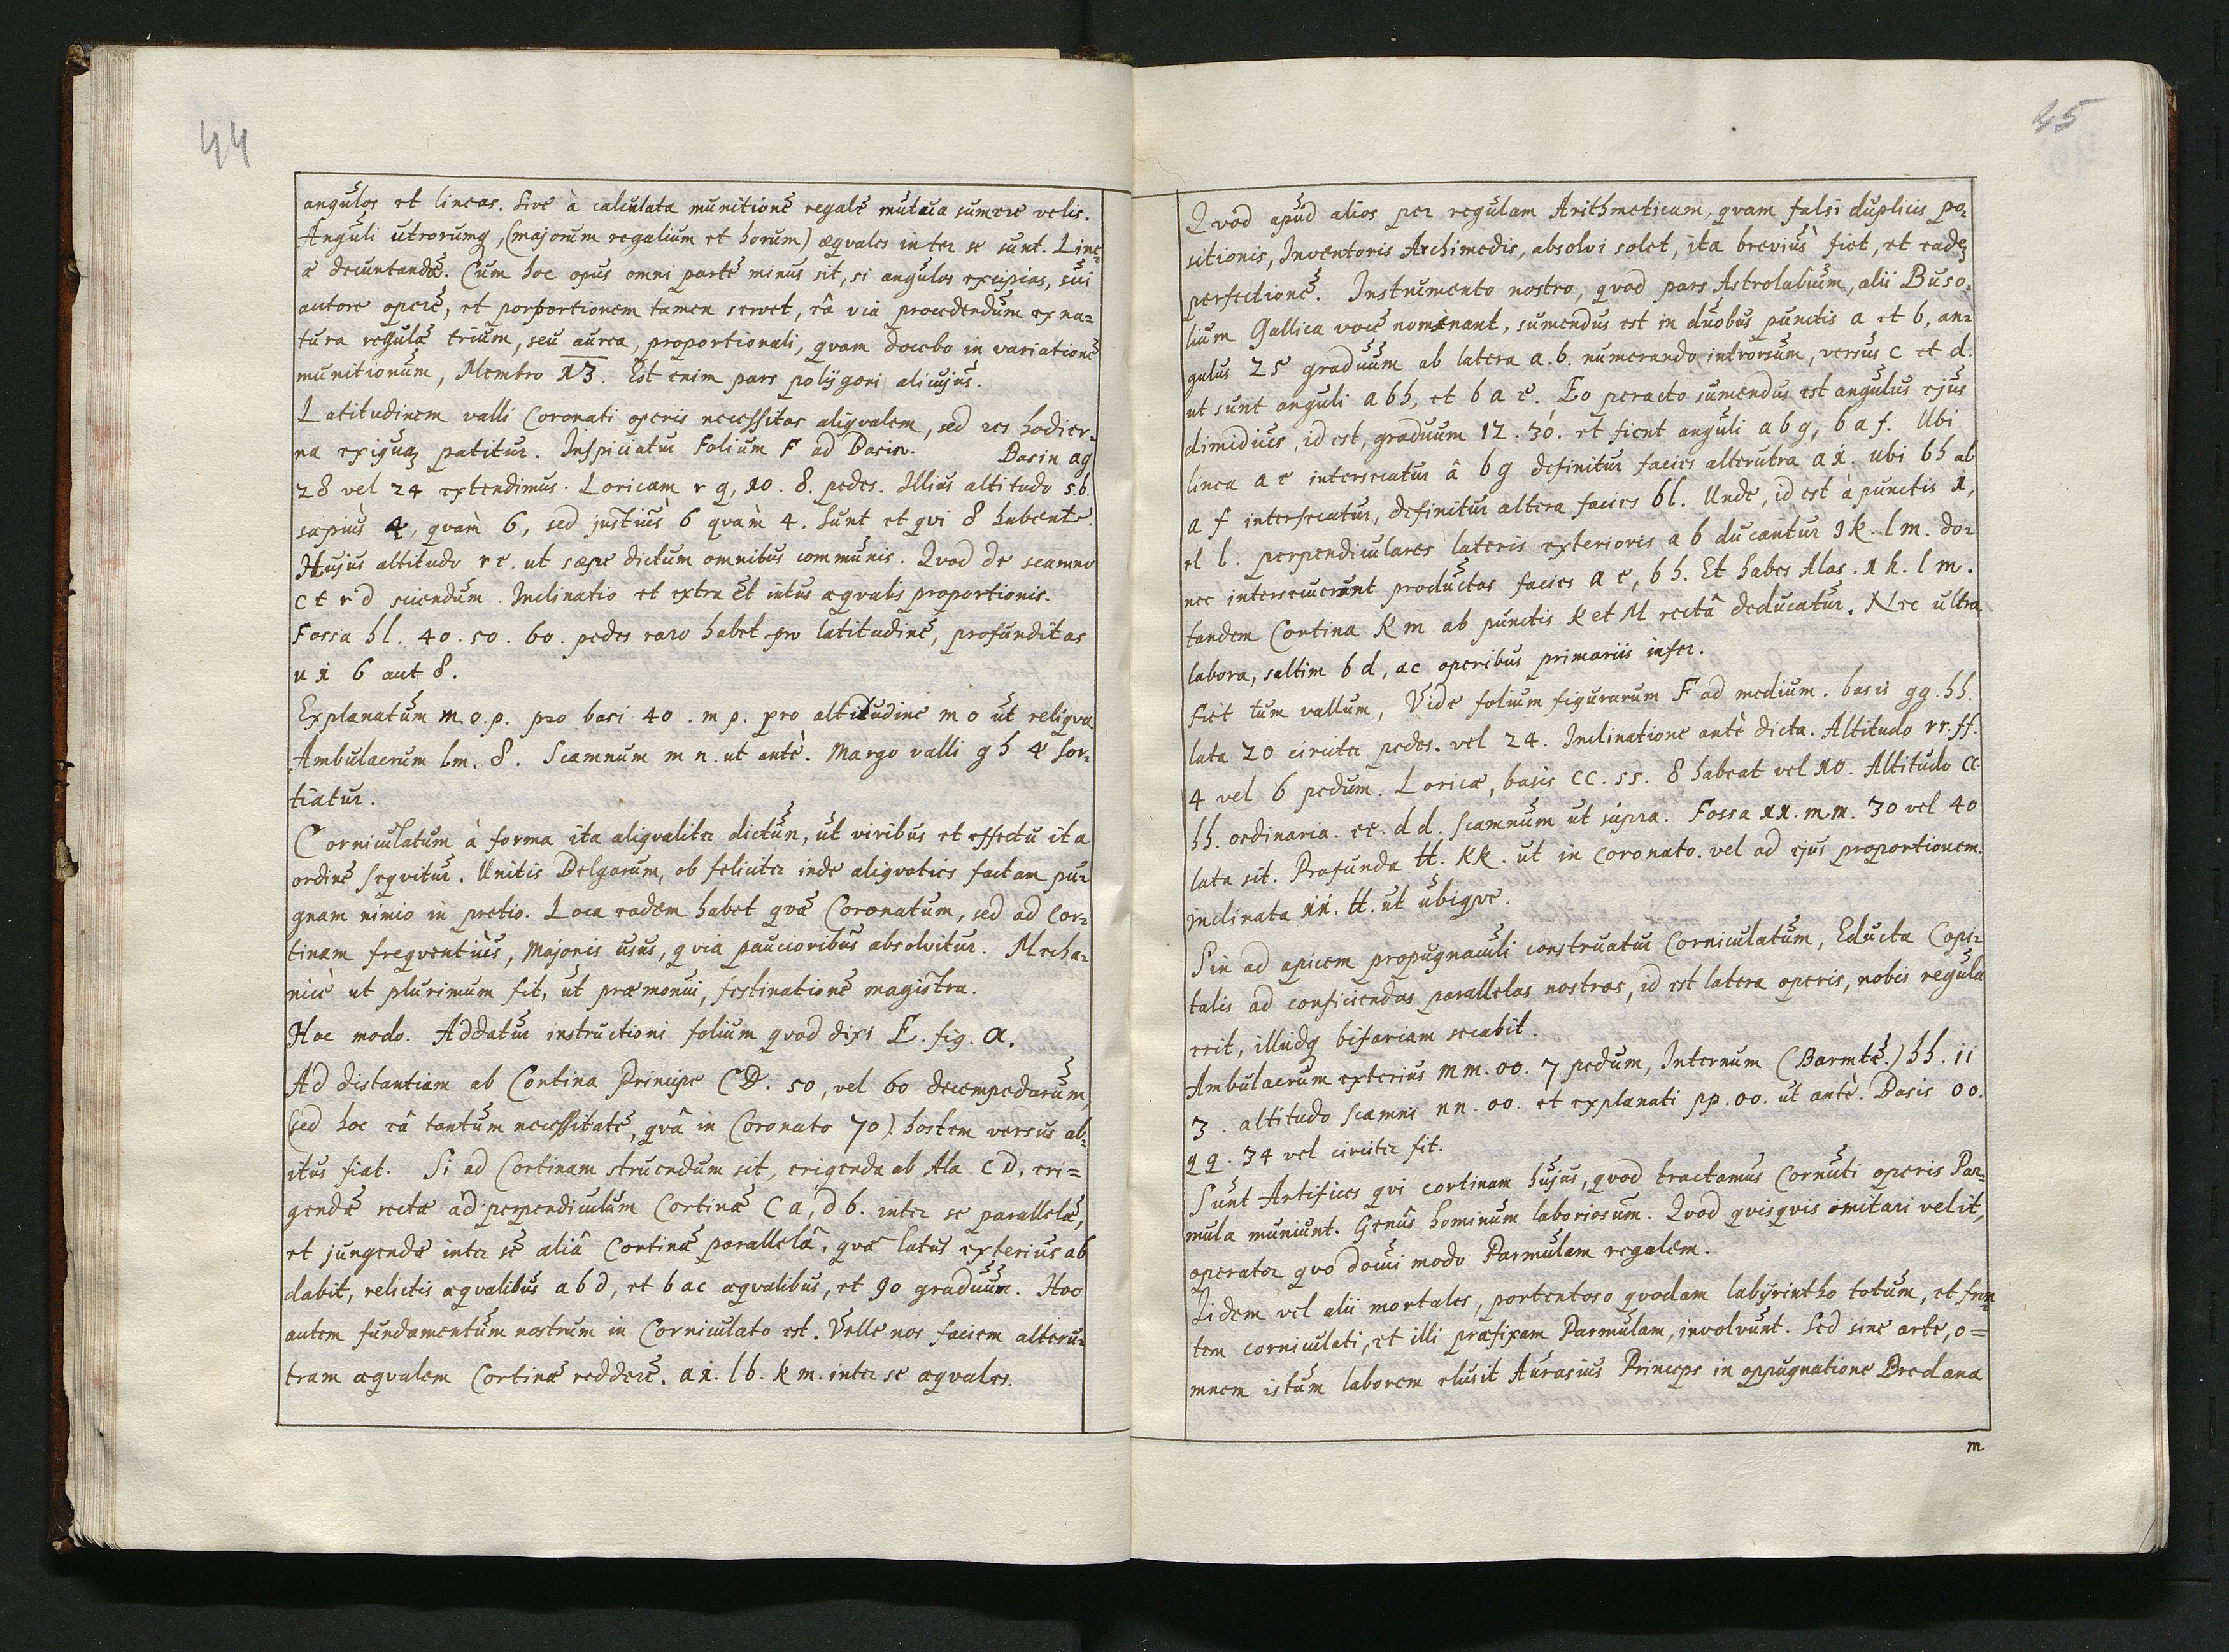 44
angulos et lineas. Sive à calculata munitione regale mutata sumere velis.
Anguli utrorumq, (majorum regalium et horum) æqvales inter se sunt. Line-
æ decurtandæ. Cum hoc opus omni parte minus sit, si angulos excipias, sui
autore opere, et porportionem tamen servet, eâ via procedendum ex na-
tura regulæ trium, seu aurea, proportionali, qvam docebo in variatione
munitionum, Membro 13. Est enim pars polijgoni alicujus.
Latitudinem valli Coronati operis necessitas aliqvalem, sed res hodier-
na exiguaz patitur. Inspiciatur Folium F ad Basin. Basin ag
28 vel 24 extendimus. Loricam r q, 10. 8. pedes. Illius altitudo s.b.
sæpius 4, qvàm 6, sed justiùs 6 qvàm 4. Sunt et qvi 8 habent.
Hujus altitudo r e. ut sæpe dictum omnibus communis. Qvod de scamno
c t r d sciendum. Inclinatio et extra et intus æqvalis proportionis.
Fossa hl. 40. 50. 60. pedes raro habet pro latitudine, profunditas
u i 6 aut 8.
Explanatum m.o.p. pro basi 40. m p. pro altitudine m o ut reliqva.
Ambulacrum lm. 8. Scamnum m n. ut antè. Margo valli g h 4 sor-
tiatur.
Corniculatum à forma ita aliqvaliter dictum, ut viribus et effectu ita
ordine seqvitur. Unitis Belgarum, ob feliciter inde aliqvoties factam pu-
gnam nimio in pretio. Loca eadem habet qvæ Coronatum, sed ad Cor-
tinam freqventiùs, Majoris usus, qvia paucioribus absolvitur. Mecha-
nicè ut plurimum fit, ut præmonui, festinatione magistra.
Hoc modo. Addatur instructioni folium qvod dixi E. fig. a.
Ad distantiam ab Cortina Principe CD. 50, vel 60 decempedarum,
(sed hoc eâ tantum necessitate, qvâ in Coronato 70) hostem versus ab-
itus fiat. Si ad Cortinam struendum sit, erigenda ab Ala c D, eri=
gendæ rectæ ad perpendiculum Cortinæ C a, d b. inter se parallelæ,
et jungendæ inter se aliâ Cortinæ parallelâ, qvæ latus exterius ab
dabit, relictis æqvalibus a b d, et b a c æqvalibus, et 90 graduum. Hoc
autem fundamentum nostrum in Corniculato est. Velle nos faciem alteru-
tram æqvalem Cortinæ reddere. a i. l b. k m. inter se æqvales.
45
Qvod apud alios per regulam Arithmeticam, qvam falsi duplicis po-
sitionis, Inventoris Archimedis, absolvi solet, ita breviùs fiet, et eadez
perfectione. Instrumento nostro, qvod pars Astrolabium, alii Buso-
lium Gallica voce nominant, sumendus est in duobus punctis a et b, an-
gulus 25 graduum ab latera a. b. numerando introrsum, versus c et d.
ut sunt anguli a b h, et b a e. Eo peracto sumendus est angulus ejus
dimidius, id est, graduum 12. 30. et fient anguli a b g, b a f. Ubi
linea a e intersecatur â b g definitur facies alterutra a i. ubi b h ab
a f intersecatur, definitur altera facies b l. Unde, id est à punctis i,
et l. perpendiculares lateris exterioris a b ducantur i k. l m. do-
nec intersecuerunt productas facies a e, b h. Et habes Alas. i k. l m.
tandem Cortina k m ab punctis k et M rectâ deducatur. Nec ultra
labora, saltim b d, a c operibus primariis infer.
Fiet tum vallum, Vide folium figurarum F ad medium. basis gg. hh.
lata 20 circiter pedes. vel 24. Inclinatione antè dicta. Altitudo rr. ff.
4 vel 6 pedum. Loricæ, basis cc. ss. 8 habeat vel 10. Altitudo cc.
hh. ordinaria. ee. dd. Scamnum ut supra. Fossa ii. mm. 30 vel 40
lata sit. Profunda tt. kk. ut in coronato. vel ad ejus proportionem.
inclinata ii. tt. ut ubiqve.
Sin ad apicem propugnaculi construatur Corniculatum, Educta Capi-
talis ad conficiendas parallelas nostras, id est latera operis, nobis regula
erit, illudq bifariam secabit.
Ambulacrum exterius mm. oo. 7 pedum, Internum (Barmte.) hh. ii
3. altitudo scamni nn. oo. et explanati pp. oo. ut antè. Basis oo.
qq. 34 vel circiter fit.
Sunt Artifices qvi cortinam hujus, qvod tractamus Cornuti operis Par-
mula muniunt. Genus hominum laboriosum. Qvod qvisqvis imitari velit,
operatr qvo docui modo Parmulam regalem.
Iidem vel alii mortales, portentoso qvodam labijrintho totum, et fron
tem corniculati, et illi præfixam Parmulam, involvunt. Sed sine arte, o=
mnem istum laborem elusit Aurasius Princeps in oppugnatione Bredana
m.